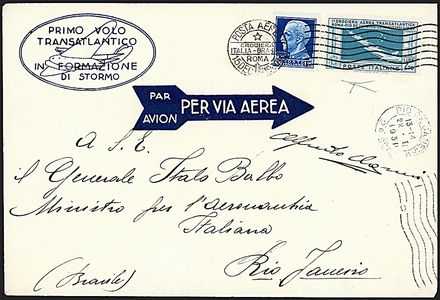 PRIMO VOLO
TRANSATLANTICO
IN FORMAZIONE
DI STORMO
POSTA AEREA
CROCIERA
ITALIA-BRASILE
ROMA
CROCIERA AEREA TRANSATLANTICA
POSTE ITALIANE
PAR
AVION
PER VIA AEREA
A S. E.
il Generale Italo Balbo
Ministro per l'aeronautica
Italiana
Rio Janeiro
(Brasile)